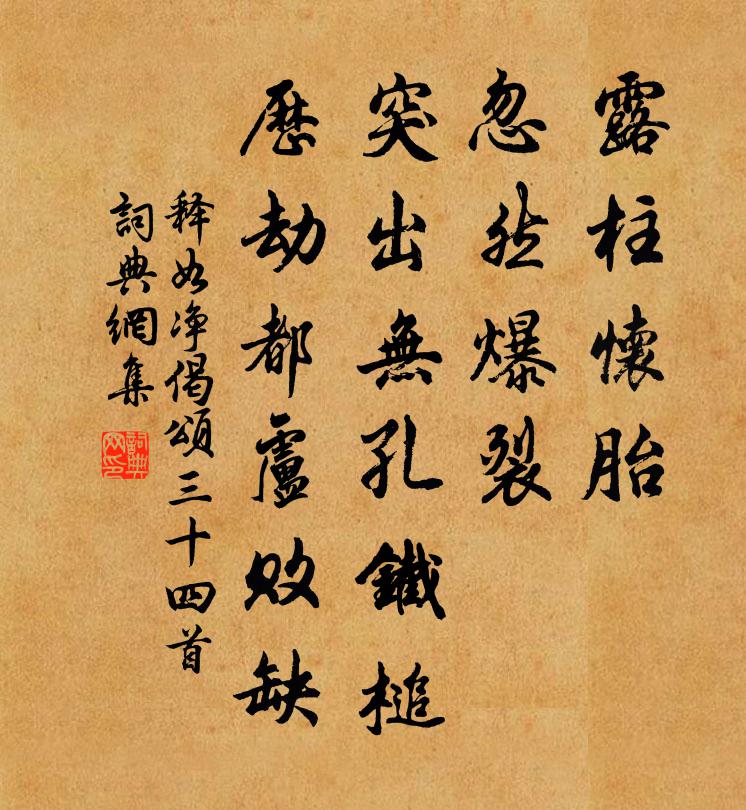 露柱懷胎
忽然爆裂
突出無孔鐵槌
歷劫都盧敗缺
释如净偈頌三十四首
詞典網集
詞典網印